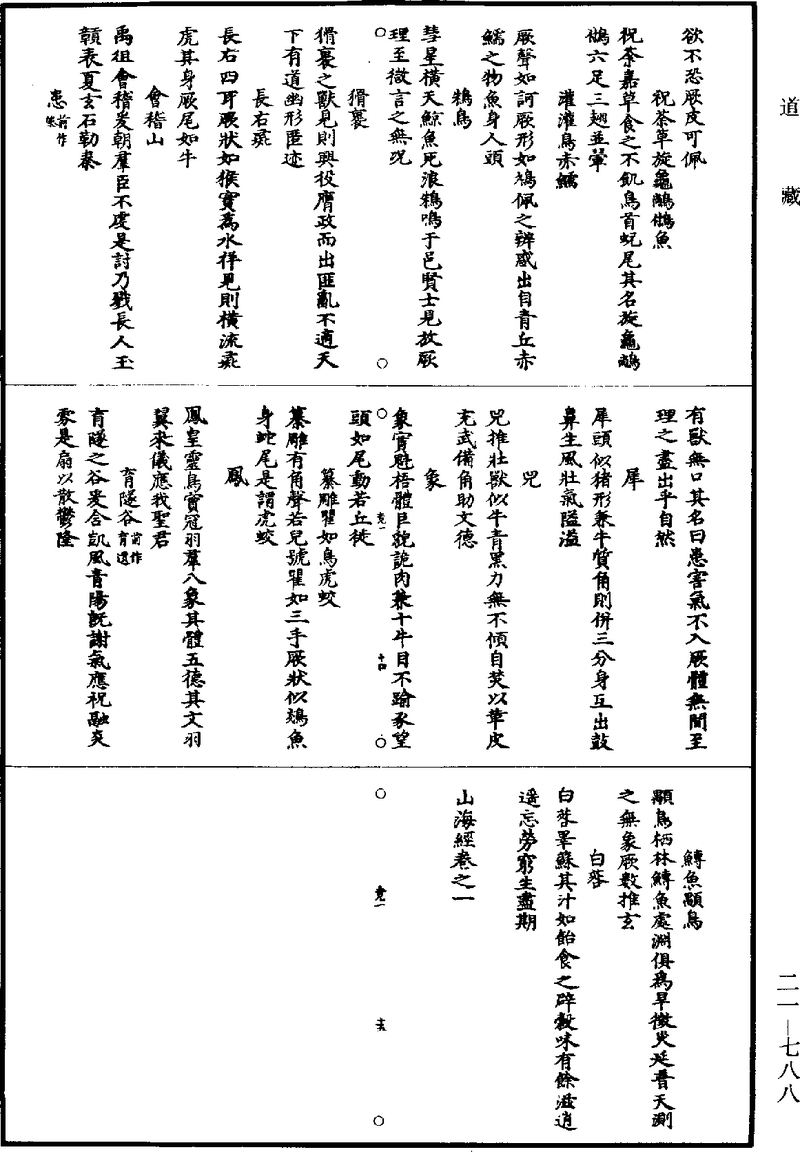 道藏
欲不恐厥皮可佩
祝荼草旋龜鵸鵂魚
祝荼嘉草食之不飢鳥首虺尾其名旋龜鵸
鵂六足三翅並翬
灌灌鳥赤鱬
厥聲如訶厥形如鳩佩之辨惑出自青丘赤
鱬之物魚身人頭
鴸鳥
彗星橫天鯨魚死浪鴸鳴于邑賢士見放厥
理至微言之無況
猾褢
猾褢之獸見則興役膺政而出匪亂不適天
下有道幽形匿迹
長右彘
長右四耳厥狀如猴實為水祥見則橫流彘
虎其身厥尾如牛
會稽山
禹徂會稽爰朝羣臣不虔是討乃戮長人玉
贑表夏玄石勒秦
患前作
有獸無口其名曰患害氣不入厥體無間至
理之盡出乎自然
犀
犀頭似猪形兼牛質角則併三分身互出鼓
鼻生風壯氣隘溢
兕
兕推壯獸似牛青黑力無不傾自焚以革皮
充武備角助文德
象
象實魁梧體巨貌詭肉兼十牛目不踰豕望
頭如尾動若丘徙
竟一
十四
纂雕瞿如鳥虎蛟
纂雕有角聲若兒號瞿如三手厥狀似鵁魚
身蛇尾是謂虎蛟
鳳
鳳皇靈鳥實冠羽羣八象其體五德其文羽
翼來儀應我聖君
育隧谷前作育遺
育隧之谷爰含凱風青陽既謝氣應祝融炎
雰是扇以散鬱隆
鱄魚顒鳥
顒鳥栖林鱄魚處淵俱為旱徵災延普天測
之無象厥數推玄
白䓘
白䓘睪蘇其汁如飴食之辟穀味有餘滋逍
遥忘勞窮生盡期
山海經卷之一
竟一
十五
二一—七八八